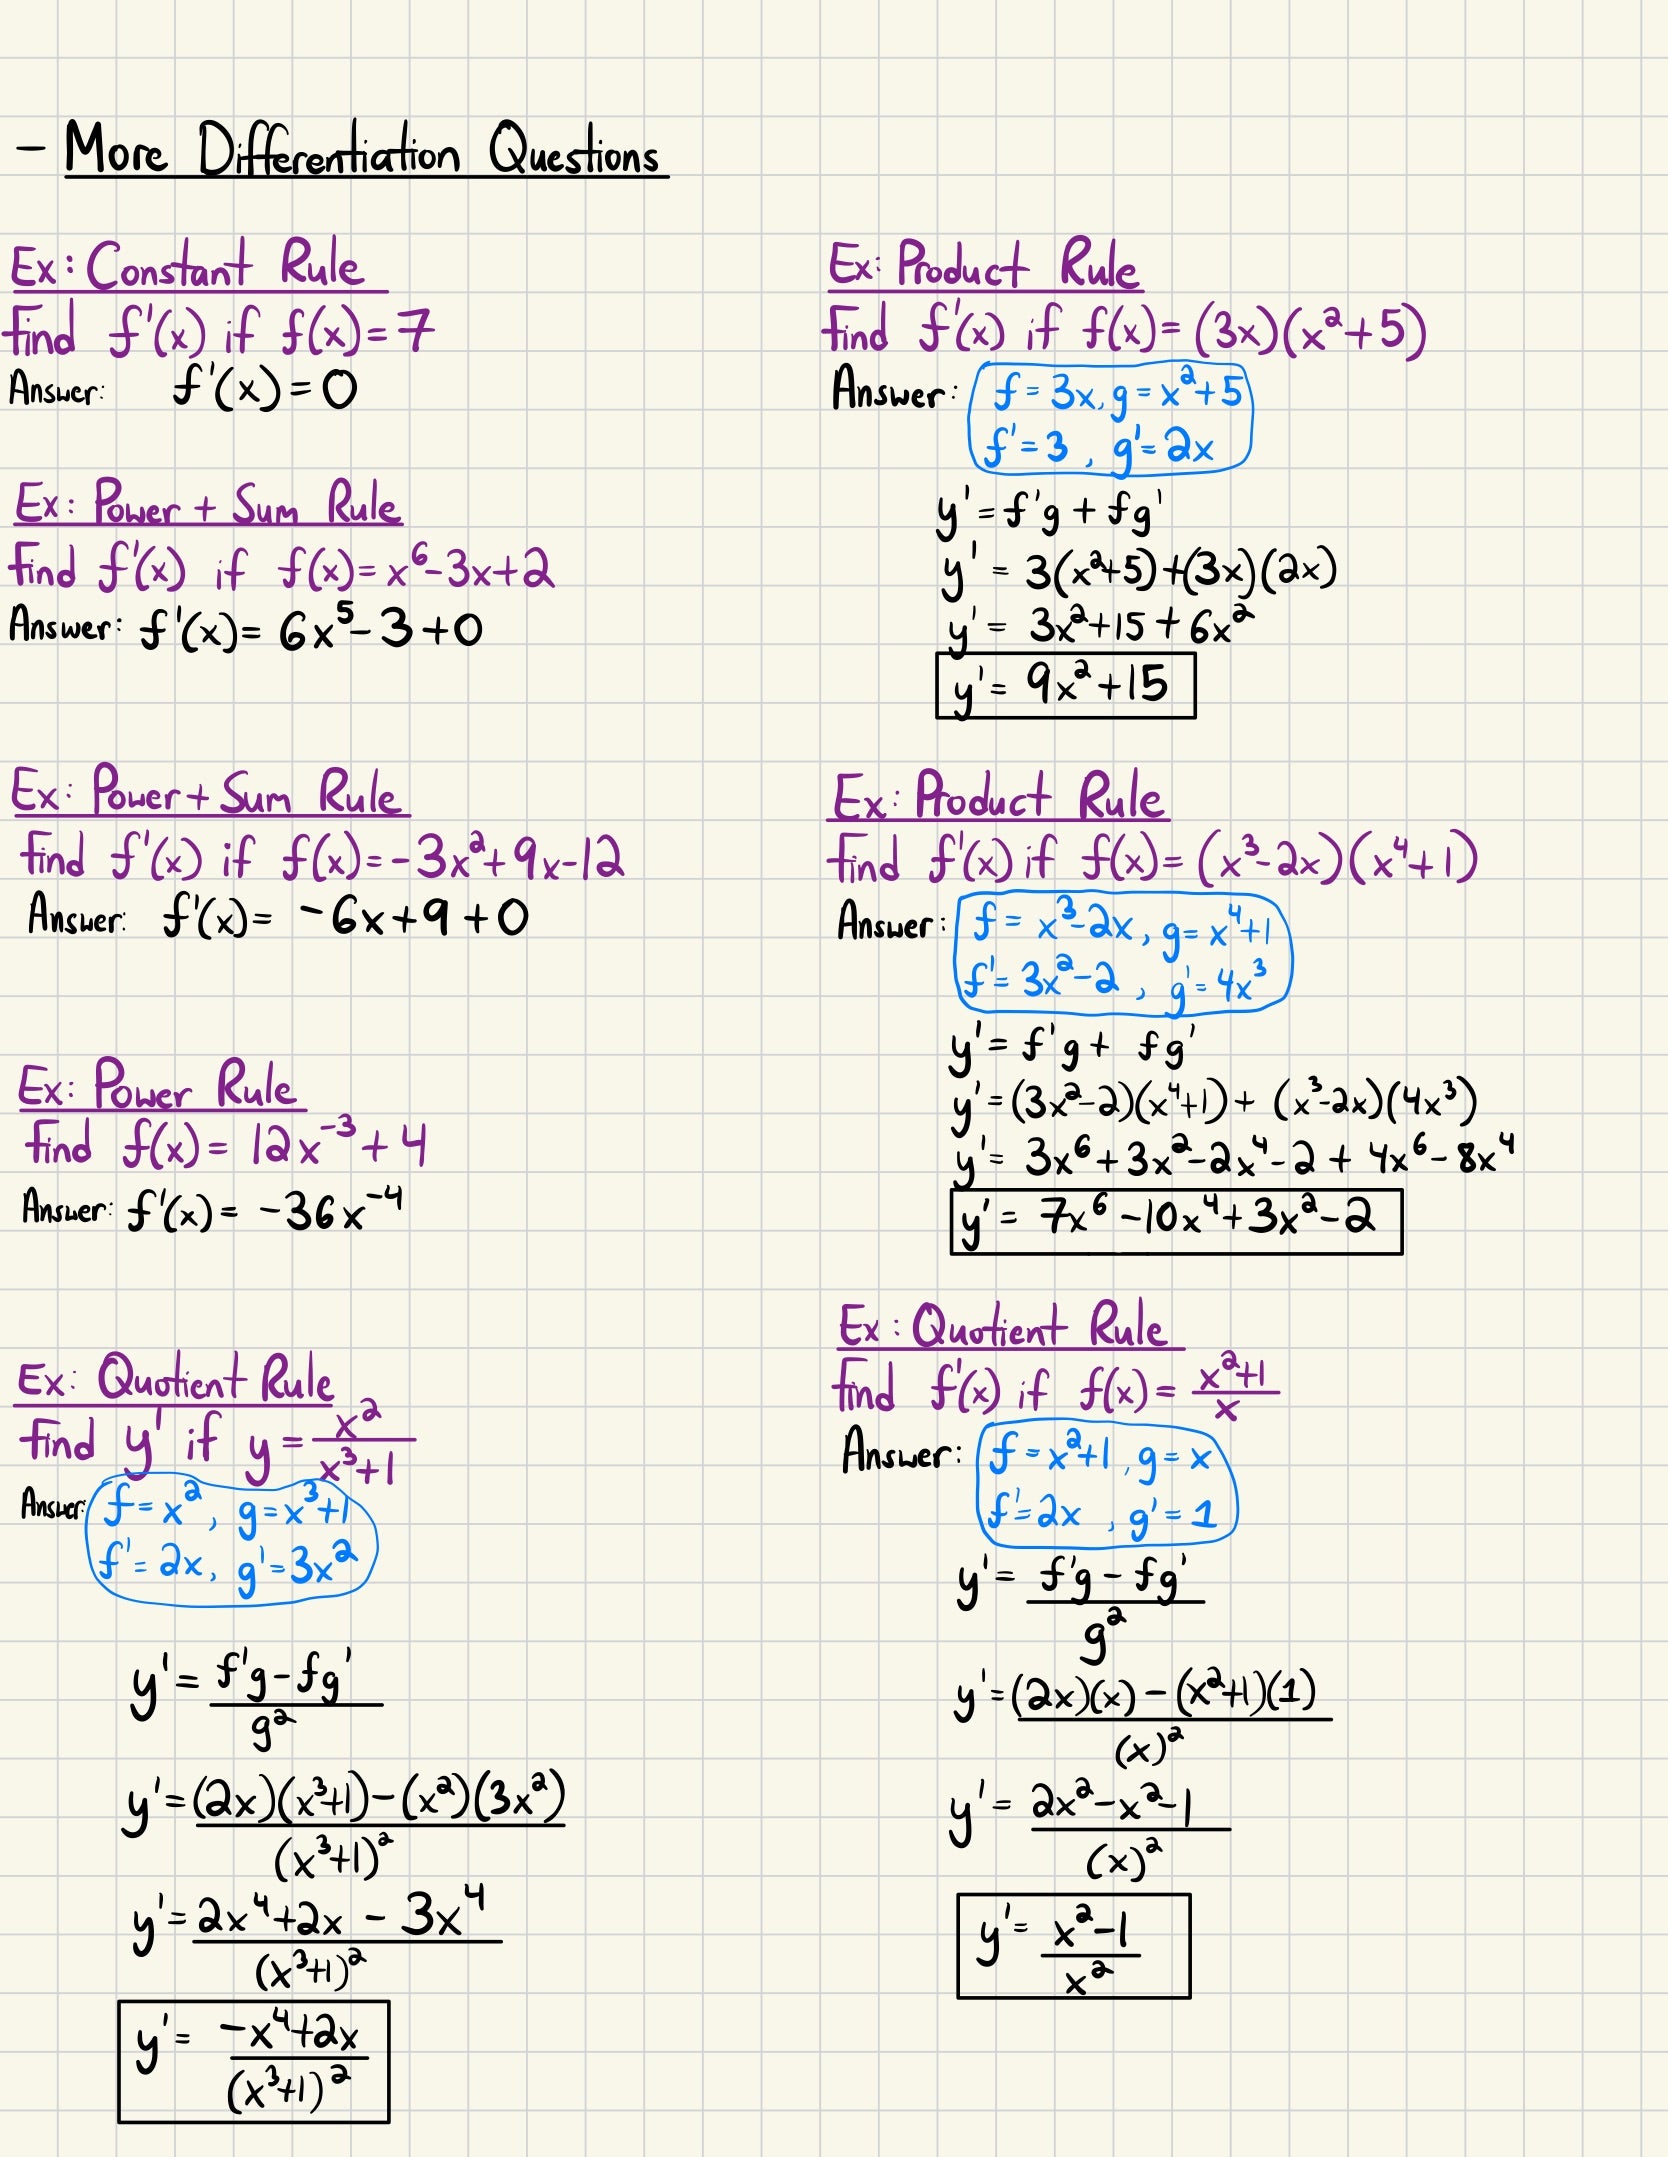 - More Differentiation Questions
Ex: Constant Rule
Find f'(x) if f(x) = 7
Answer: f'(x) = 0
Ex: Power + Sum Rule
Find f'(x) if f(x) = x⁶-3x+2
Answer: f'(x) = 6x⁵-3+0
Ex: Power + Sum Rule
Find f'(x) if f(x) = -3x²+9x-12
Answer: f'(x) = -6x+9+0
Ex: Power Rule
Find f(x) = 12x⁻³+4
Answer: f'(x) = -36x⁻⁴
Ex: Quotient Rule
Find y' if y = x²/(x³+1)
Answer: f = x², g = x³+1
f' = 2x, g' = 3x²
y' = (f'g-fg')/g²
y' = ((2x)(x³+1)-(x²)(3x²))/(x³+1)²
y' = (2x⁴+2x - 3x⁴)/(x³+1)²
y' = (-x⁴+2x)/(x³+1)²
Ex: Product Rule
Find f'(x) if f(x) = (3x)(x²+5)
Answer: f = 3x, g = x²+5
f' = 3, g' = 2x
y' = f'g + fg'
y' = 3(x²+5)+(3x)(2x)
y' = 3x²+15+6x²
y' = 9x²+15
Ex: Product Rule
Find f'(x) if f(x) = (x³-2x)(x⁴+1)
Answer: f = x³-2x, g = x⁴+1
f' = 3x²-2, g' = 4x³
y' = f'g + fg'
y' = (3x²-2)(x⁴+1) + (x³-2x)(4x³)
y' = 3x⁶+3x²-2x⁴-2 + 4x⁶-8x⁴
y' = 7x⁶-10x⁴+3x²-2
Ex: Quotient Rule
Find f'(x) if f(x) = (x²+1)/x
Answer: f = x²+1, g = x
f' = 2x, g' = 1
y' = (f'g-fg')/g²
y' = ((2x)(x) - (x²+1)(1))/(x)²
y' = (2x²-x²-1)/(x)²
y' = (x²-1)/x²